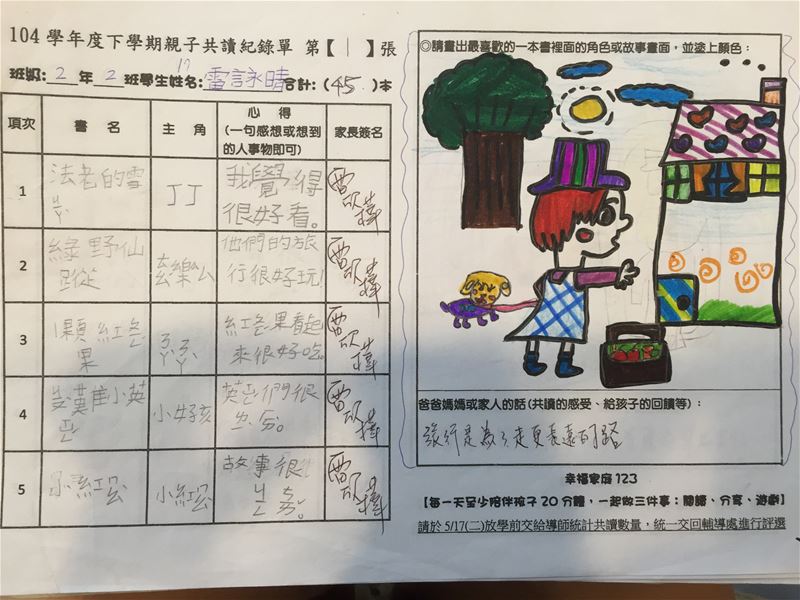 104 學年度下學期親子共讀紀錄單 第【 1 】張
班級: 2 年 2 班學生姓名: 雷詠晴 合計:( 45 )本
17
項次
書 名
主 角
心 得
(一句感想或想到
的人事物即可)
家長簽名
1
法老的雪
ㄐㄧㄚ
丁丁
我覺得
很好看。
2
綠野仙
蹤
桃樂ㄙ
他們的旅
行很好玩!
3
1顆紅色
果
紅色果看起
來很好吃。
4
小英
小女孩
們很
5
小紅
小紅
故事很
◎請畫出最喜歡的一本書裡面的角色或故事畫面,並塗上顏色:
爸爸媽媽或家人的話(共讀的感受、給孩子的回饋等):
旅行是為了走更長遠的路
幸福家庭 123
【每一天至少陪伴孩子 20 分鐘,一起做三件事:閱讀、分享、遊戲】
請於 5/17(二)放學前交給導師統計共讀數量,統一交回輔導處進行評選